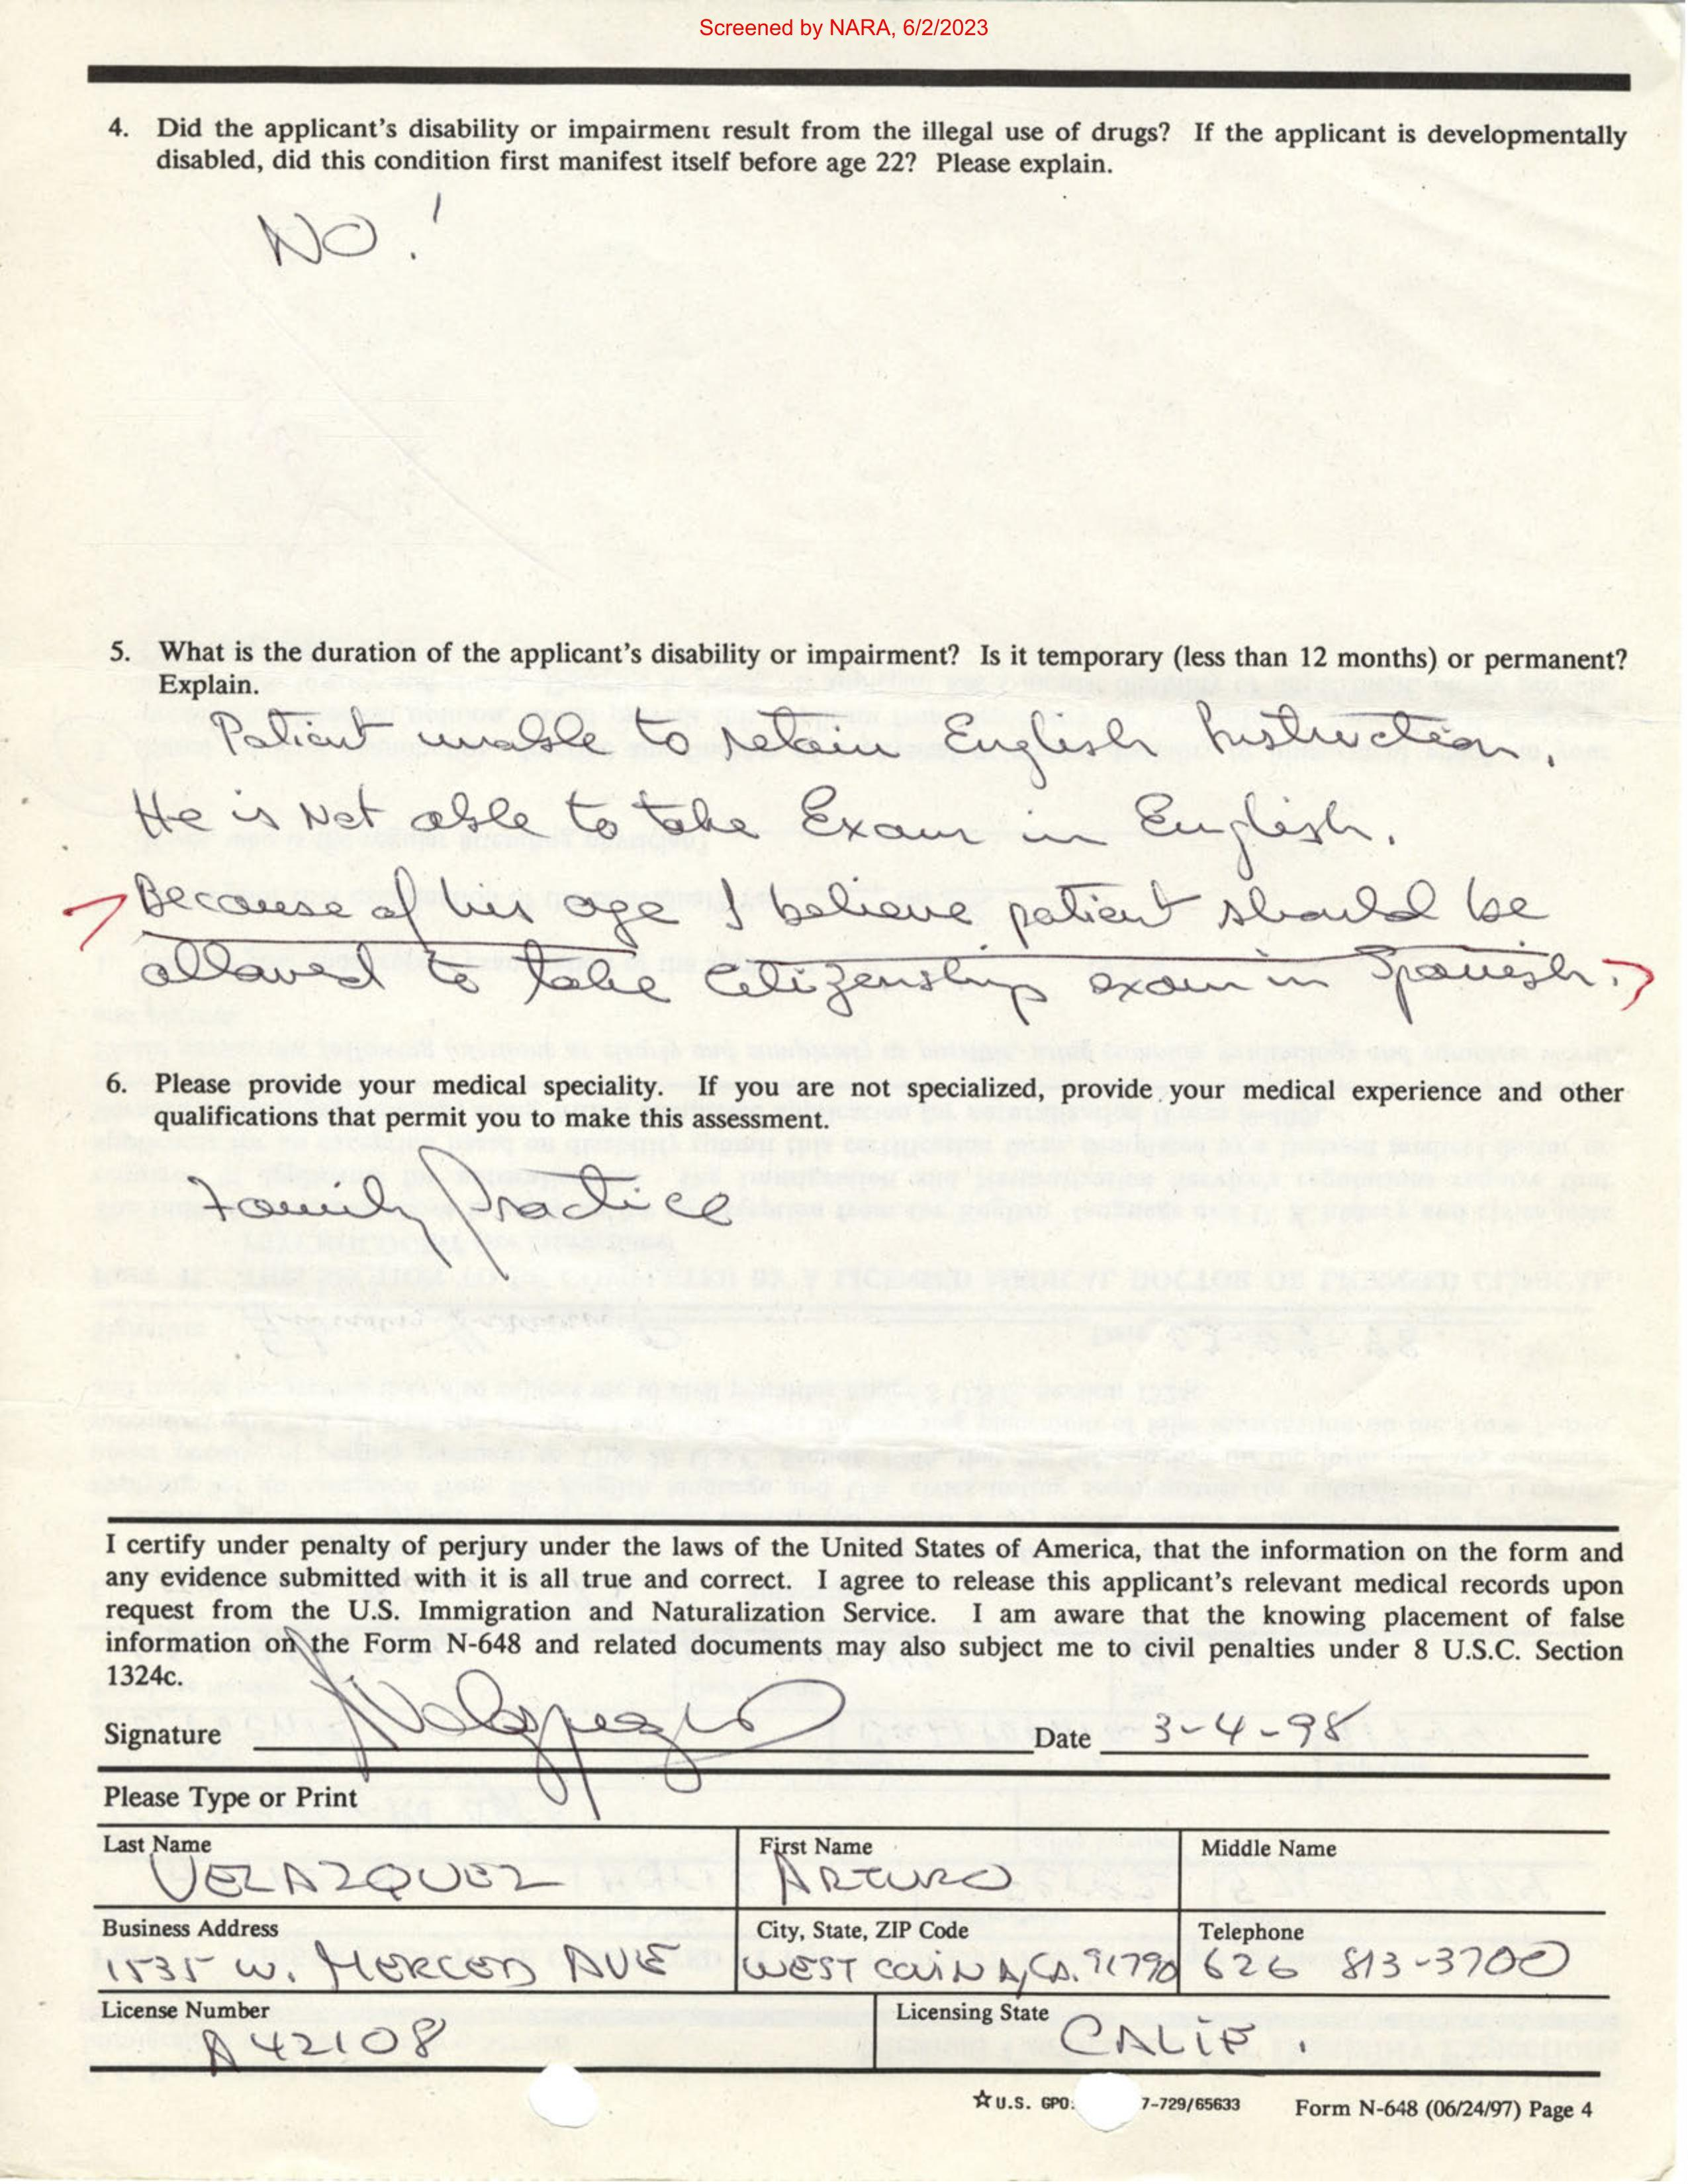 Screened by NARA, 6/2/2023
4. Did the applicant's disability or impairment result from the illegal use of drugs? If the applicant is developmentally
disabled, did this condition first manifest itself before age 22? Please explain.
NO!
5. What is the duration of the applicant's disability or impairment? Is it temporary (less than 12 months) or permanent?
Explain.
Patient unable to retain English Instruction.
He is Not able to take Exam in English.
Because of his age I believe patient should be
allowed to take citizenship exam in Spanish.
6. Please provide your medical speciality. If you are not specialized, provide your medical experience and other
qualifications that permit you to make this assessment.
Family Practice
I certify under penalty of perjury under the laws of the United States of America, that the information on the form and
any evidence submitted with it is all true and correct. I agree to release this applicant's relevant medical records upon
request from the U.S. Immigration and Naturalization Service. I am aware that the knowing placement of false
information on the Form N-648 and related documents may also subject me to civil penalties under 8 U.S.C. Section
1324c.
Signature Date 3-4-98
Please Type or Print
Last Name First Name Middle Name
VELAZQUEZ ARTURO
Business Address City, State, ZIP Code Telephone
1535 W. MERCED AVE WEST COVINA, CA. 91790 626 813-3700
License Number Licensing State
A42108 CALIF.
☆U.S. GPO: 7-729/65633 Form N-648 (06/24/97) Page 4